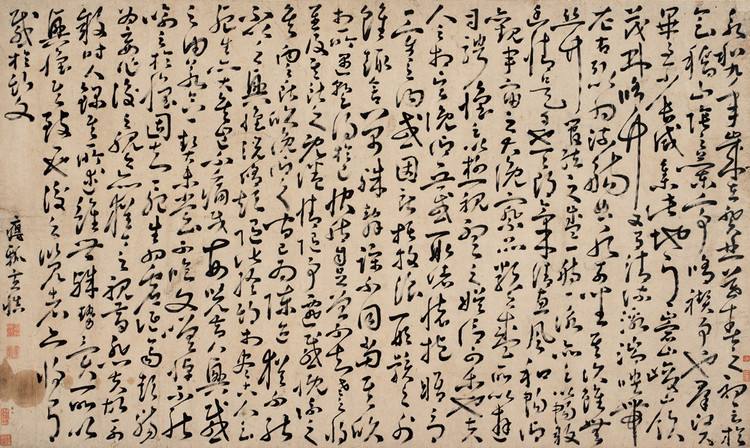 永和九年歲在癸丑暮春之初會於
會稽山陰之蘭亭脩禊事也群賢
畢至少長咸集此地有崇山峻領
茂林脩竹又有清流激湍映帶
左右引以為流觴曲水列坐其次雖無
絲竹管弦之盛一觴一詠亦足以暢敘
幽情是日也天朗氣清惠風和暢仰
觀宇宙之大俯察品類之盛所以遊
目騁懷足以極視聽之娛信可樂也夫
人之相與俯仰一世或取諸懷抱悟言
一室之內或因寄所託放浪形骸之外
雖趣舍萬殊靜躁不同當其欣
於所遇暫得於己快然自足曾不知老之將
至及其所之既倦情隨事遷感慨係之
矣向之所欣俛仰之間已為陳迹猶不能
不以之興懷況脩短隨化終期於盡古人云
死生亦大矣豈不痛哉每覽昔人興感
之由若合一契未嘗不臨文嗟悼不能
喻之於懷固知一死生為虛誕齊彭殤
為妄作後之視今亦猶今之視昔悲夫故列
敘時人錄其所述雖世殊事異所以
興懷其致一也後之覽者亦將有
感於斯文
癭瓢黃慎